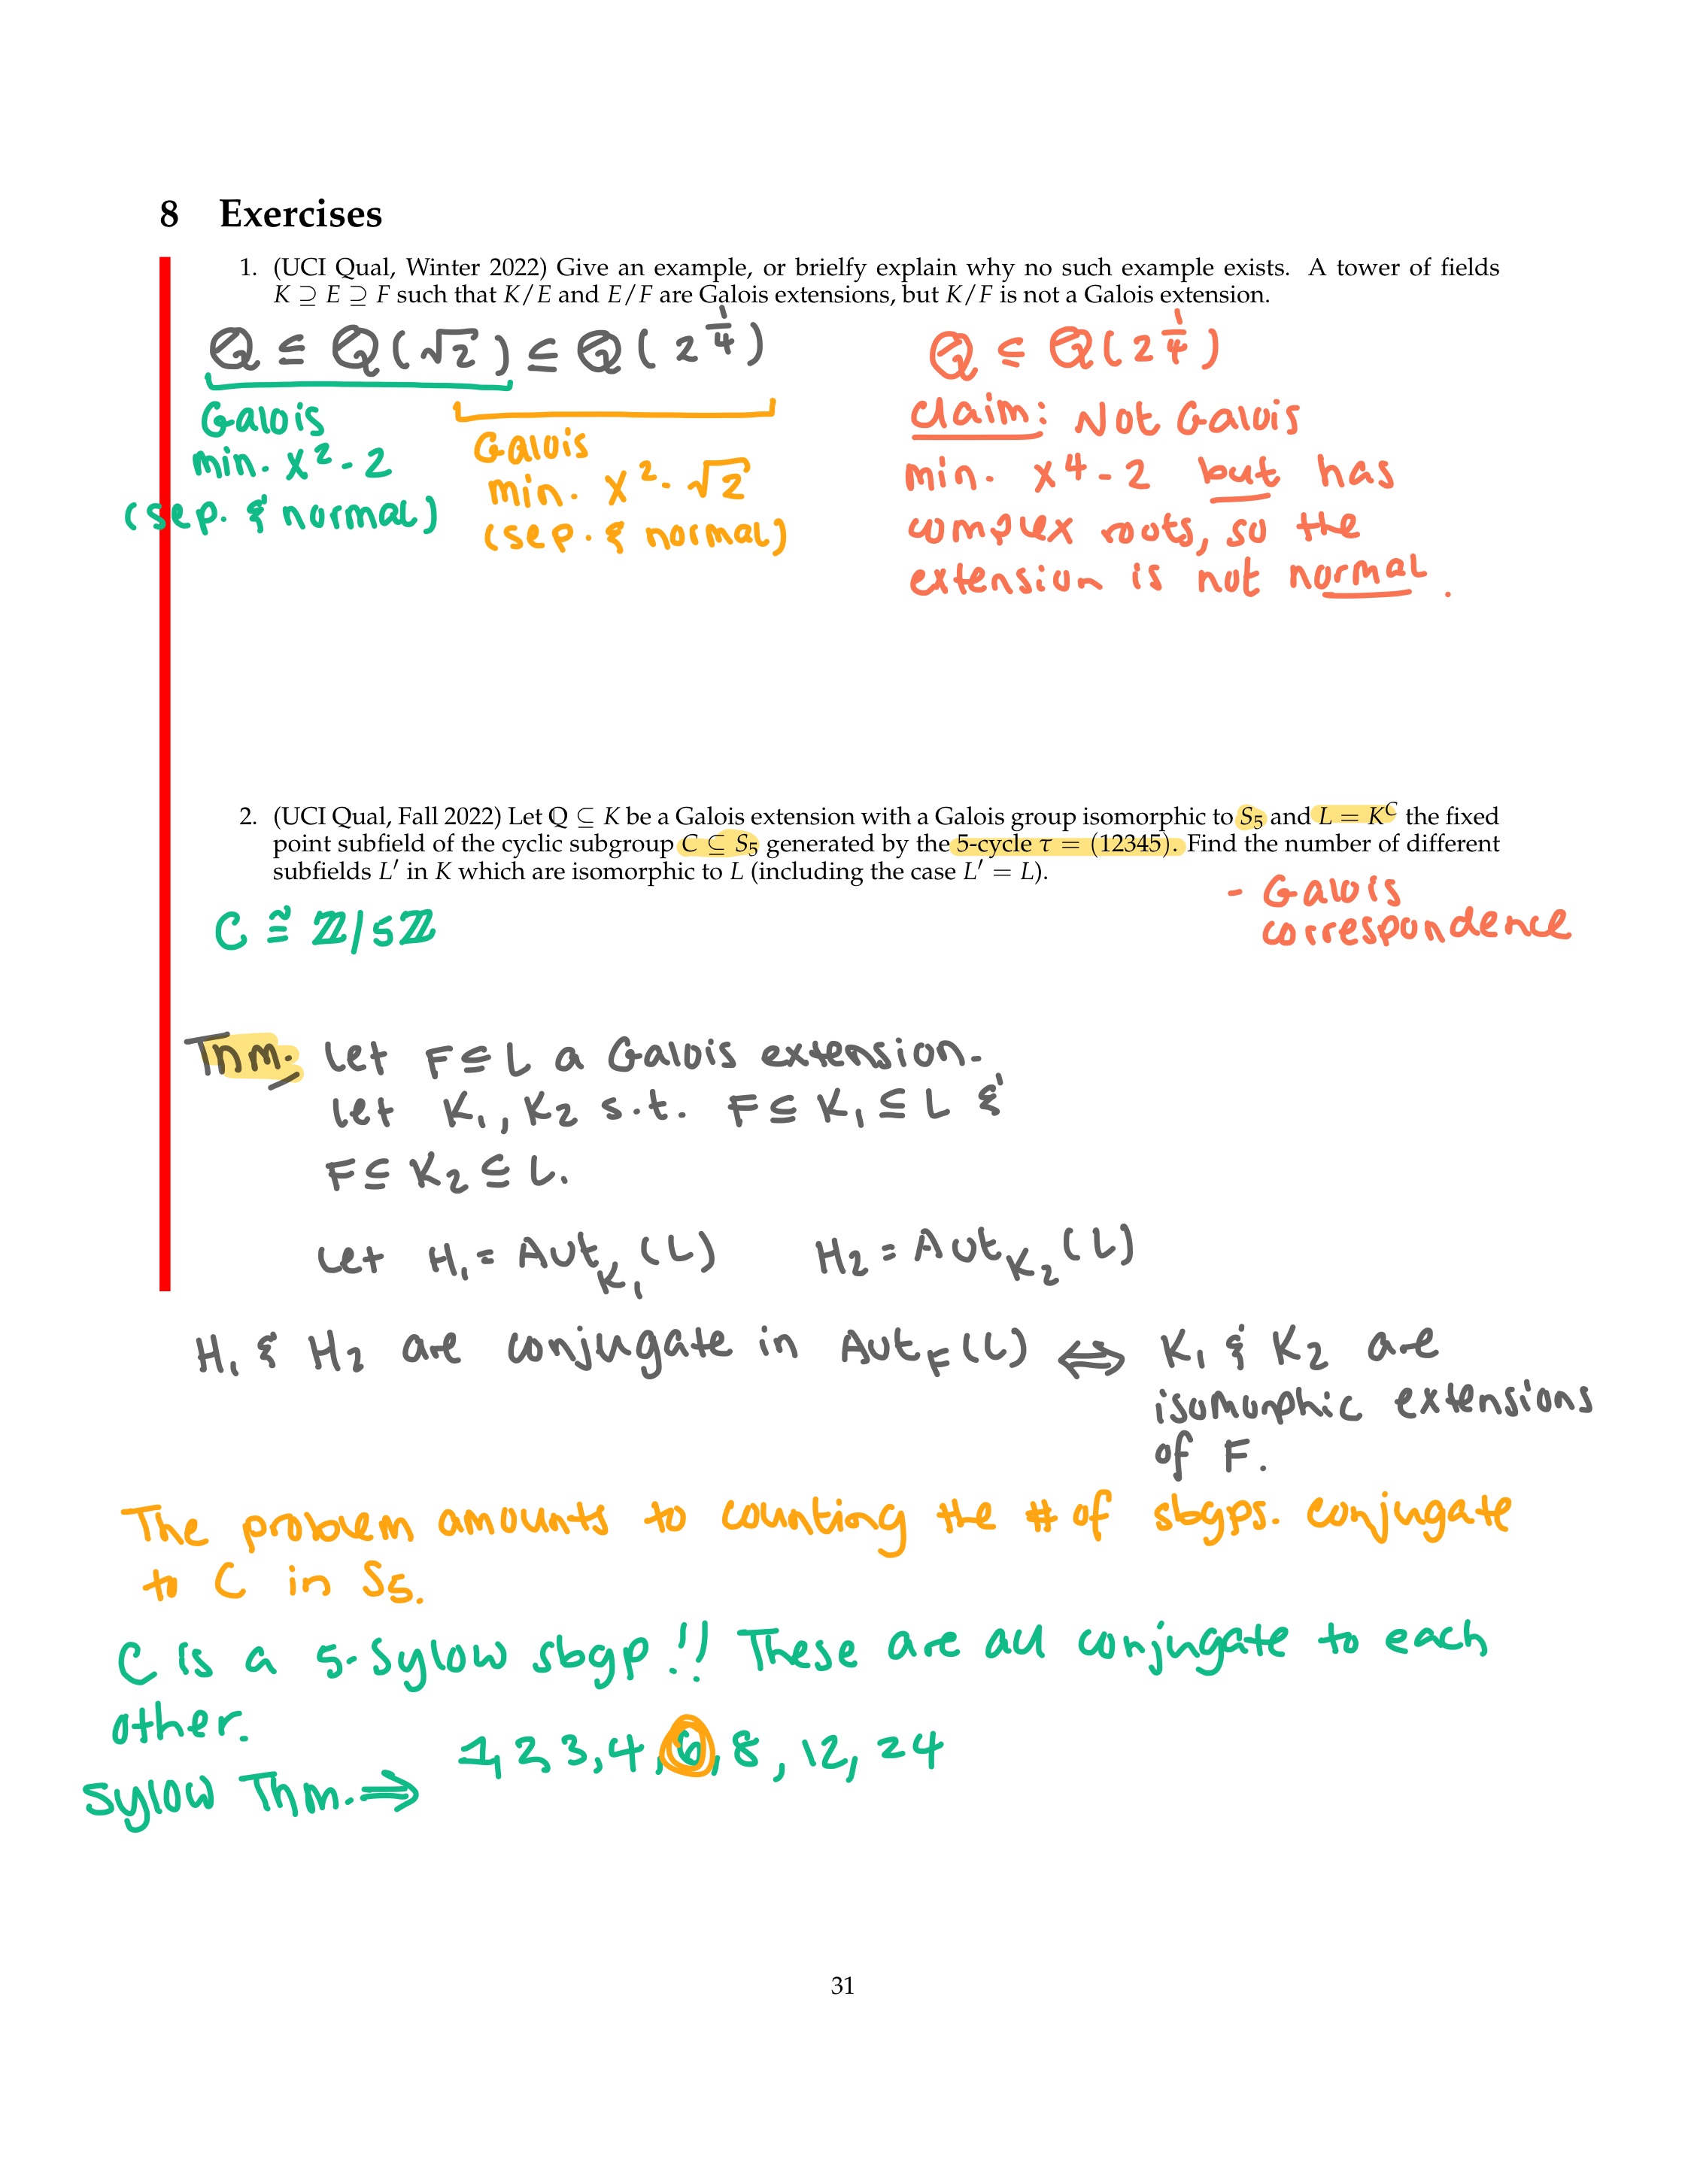 8 Exercises
1. (UCI Qual, Winter 2022) Give an example, or brielfy explain why no such example exists. A tower of fields
K ⊇ E ⊇ F such that K/E and E/F are Galois extensions, but K/F is not a Galois extension.
ℚ ⊆ ℚ(√2) ⊆ ℚ(2^{1/4})
Galois
min. x² - 2
(sep. & normal)
Galois
min. x² - √2
(sep. & normal)
ℚ ⊆ ℚ(2^{1/4})
claim: Not Galois
min. x⁴ - 2 but has
complex roots, so the
extension is not normal.
2. (UCI Qual, Fall 2022) Let ℚ ⊆ K be a Galois extension with a Galois group isomorphic to S₅ and L = K^C the fixed
point subfield of the cyclic subgroup C ⊆ S₅ generated by the 5-cycle τ = (12345). Find the number of different
subfields L′ in K which are isomorphic to L (including the case L′ = L).
- Galois
correspondence
C ≅ ℤ/5ℤ
Thm. Let F ⊆ L a Galois extension.
Let K₁, K₂ s.t. F ⊆ K₁ ⊆ L &
F ⊆ K₂ ⊆ L.
Let H₁ = Aut_{K₁}(L) H₂ = Aut_{K₂}(L)
H₁ & H₂ are conjugate in Aut_F(L) ⟺ K₁ & K₂ are
isomorphic extensions
of F.
The problem amounts to counting the # of sbgps. conjugate
to C in S₅.
C is a 5-Sylow sbgp!! These are all conjugate to each
other.
Sylow Thm. ⟹ 1, 2, 3, 4, 6, 8, 12, 24
31